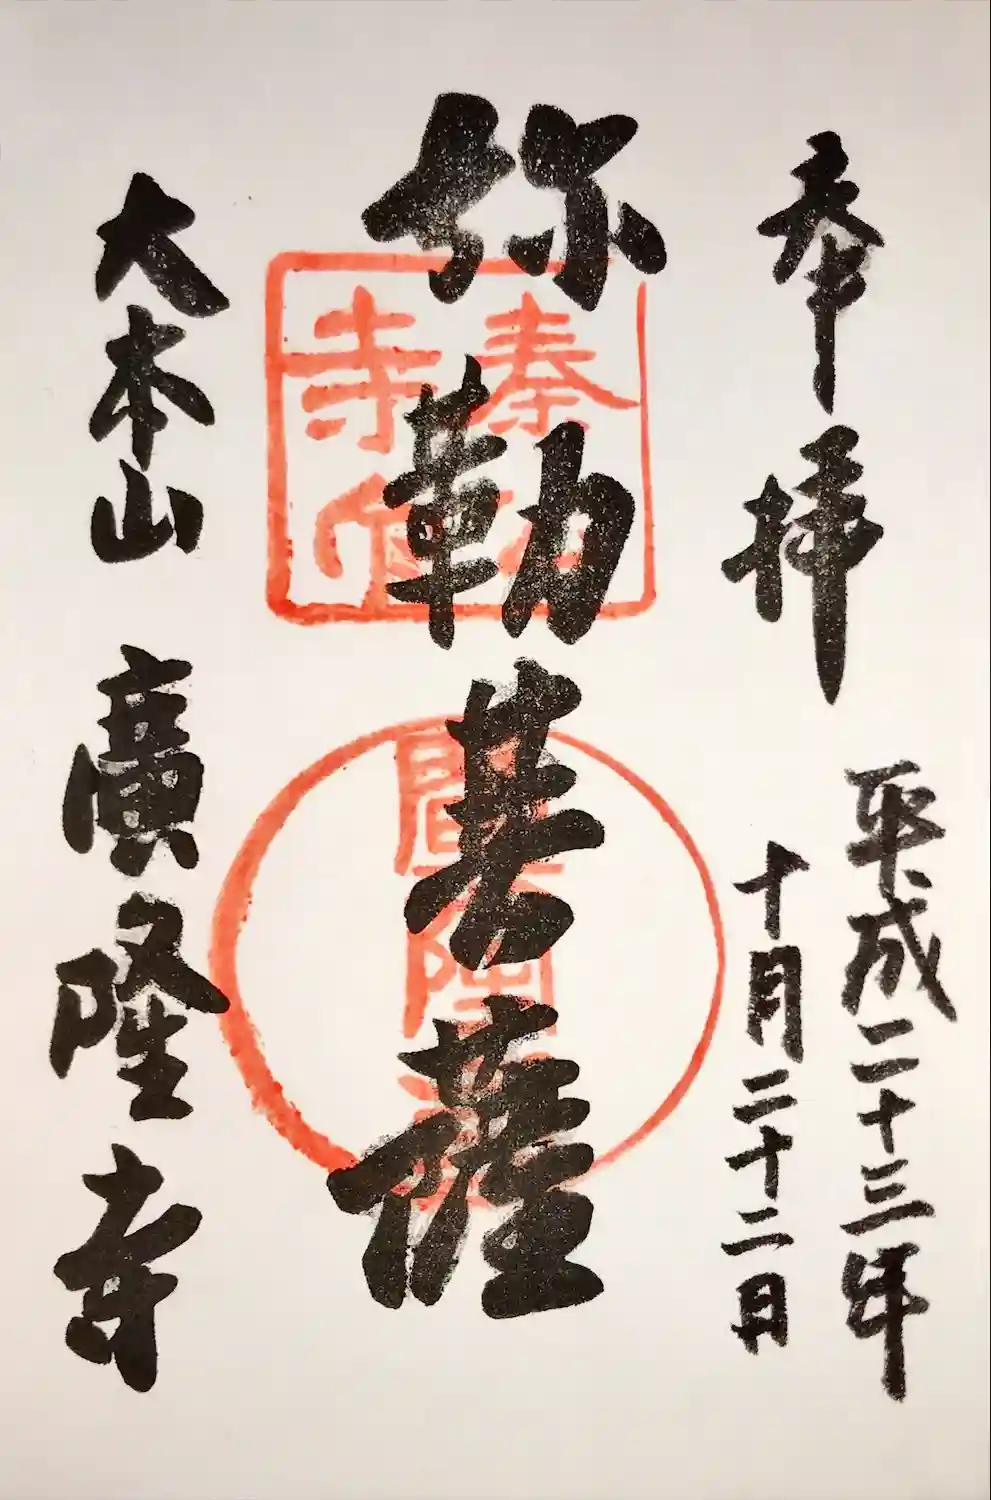 奉拝
平成二十三年
十月二十二日
弥勒菩薩
大本山 廣隆寺